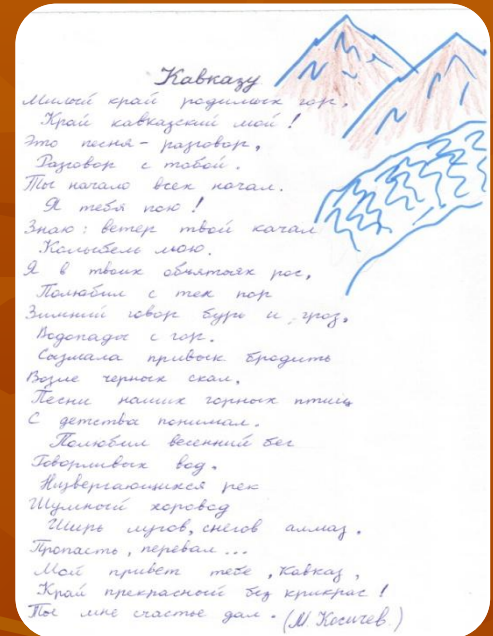 Кавказу
Милый край родимых гор,
Край кавказский мой!
Это песня - разговор,
Разговор с тобой.
Ты начало всех начал.
Я тебя пою!
Знаю: ветер твой качал
Колыбель мою.
Я в твоих объятьях рос,
Полюбил с тех пор
Зимний говор бурь и гроз,
Водопады с гор.
Сызмала привык бродить
Возле черных скал,
Песни наших горных птиц
С детства понимал.
Полюбил весенний бег
Говорливых вод.
Низвергающихся рек
Шумный хоровод
Ширь лугов, снегов алмаз.
Пропасть, перевал...
Мой привет тебе, Кавказ,
Край прекрасный без прикрас!
Ты мне счастье дал. (М. Косичев.)